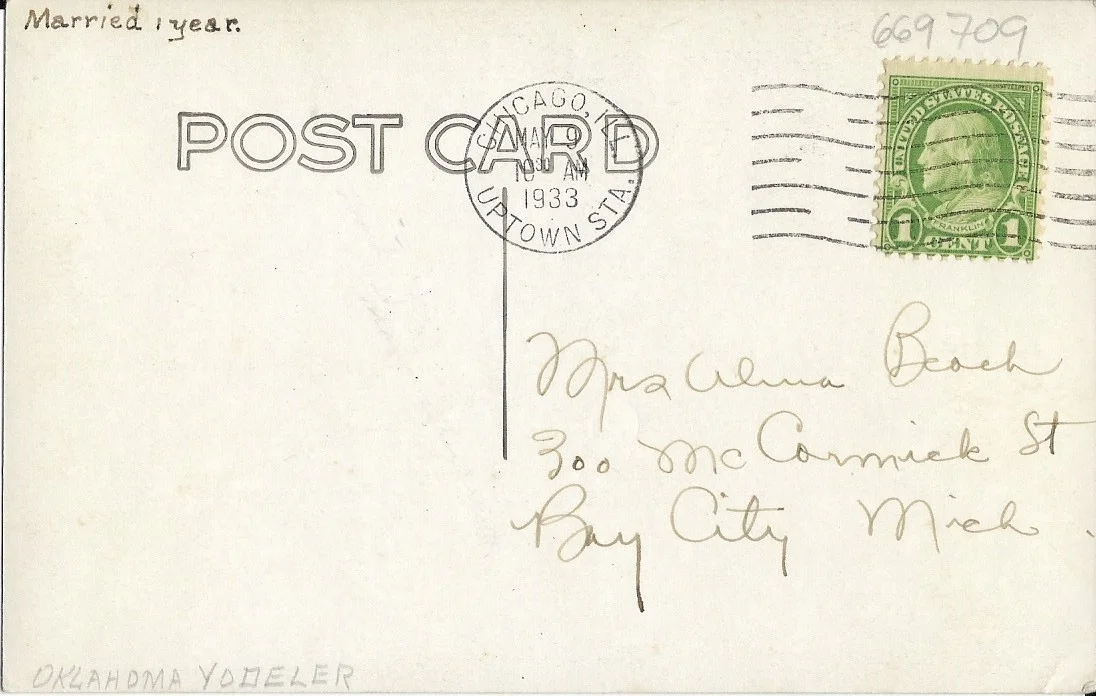 Married 1 year.
669 709
POST CARD
CHICAGO, ILL.
MAY 9
10 30 AM
1933
UPTOWN STA.
UNITED STATES POSTAGE
FRANKLIN
1 CENT 1
Mrs Alma Beach
300 McCormick St
Bay City Mich.
OKLAHOMA YODELER